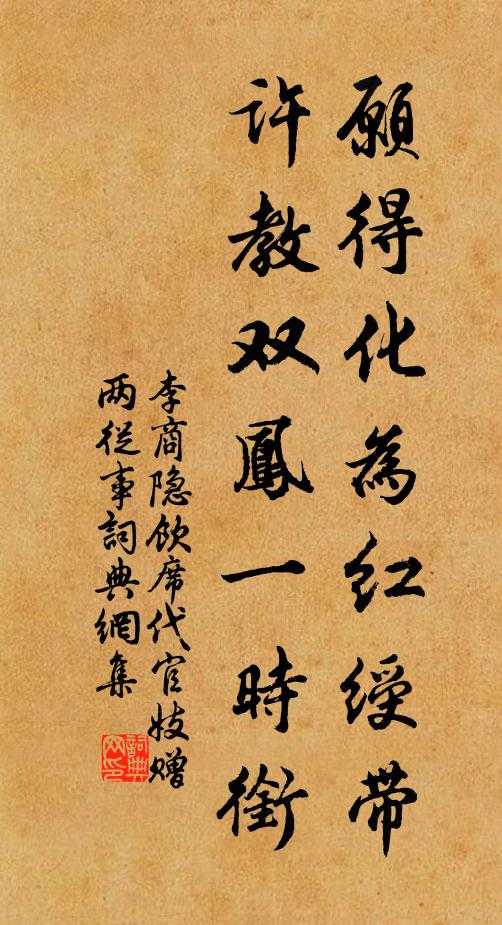 願得化為紅綬带
许教双鳳一時銜
李商隐飲席代官妓赠
两從事詞典網集
詞典
网印